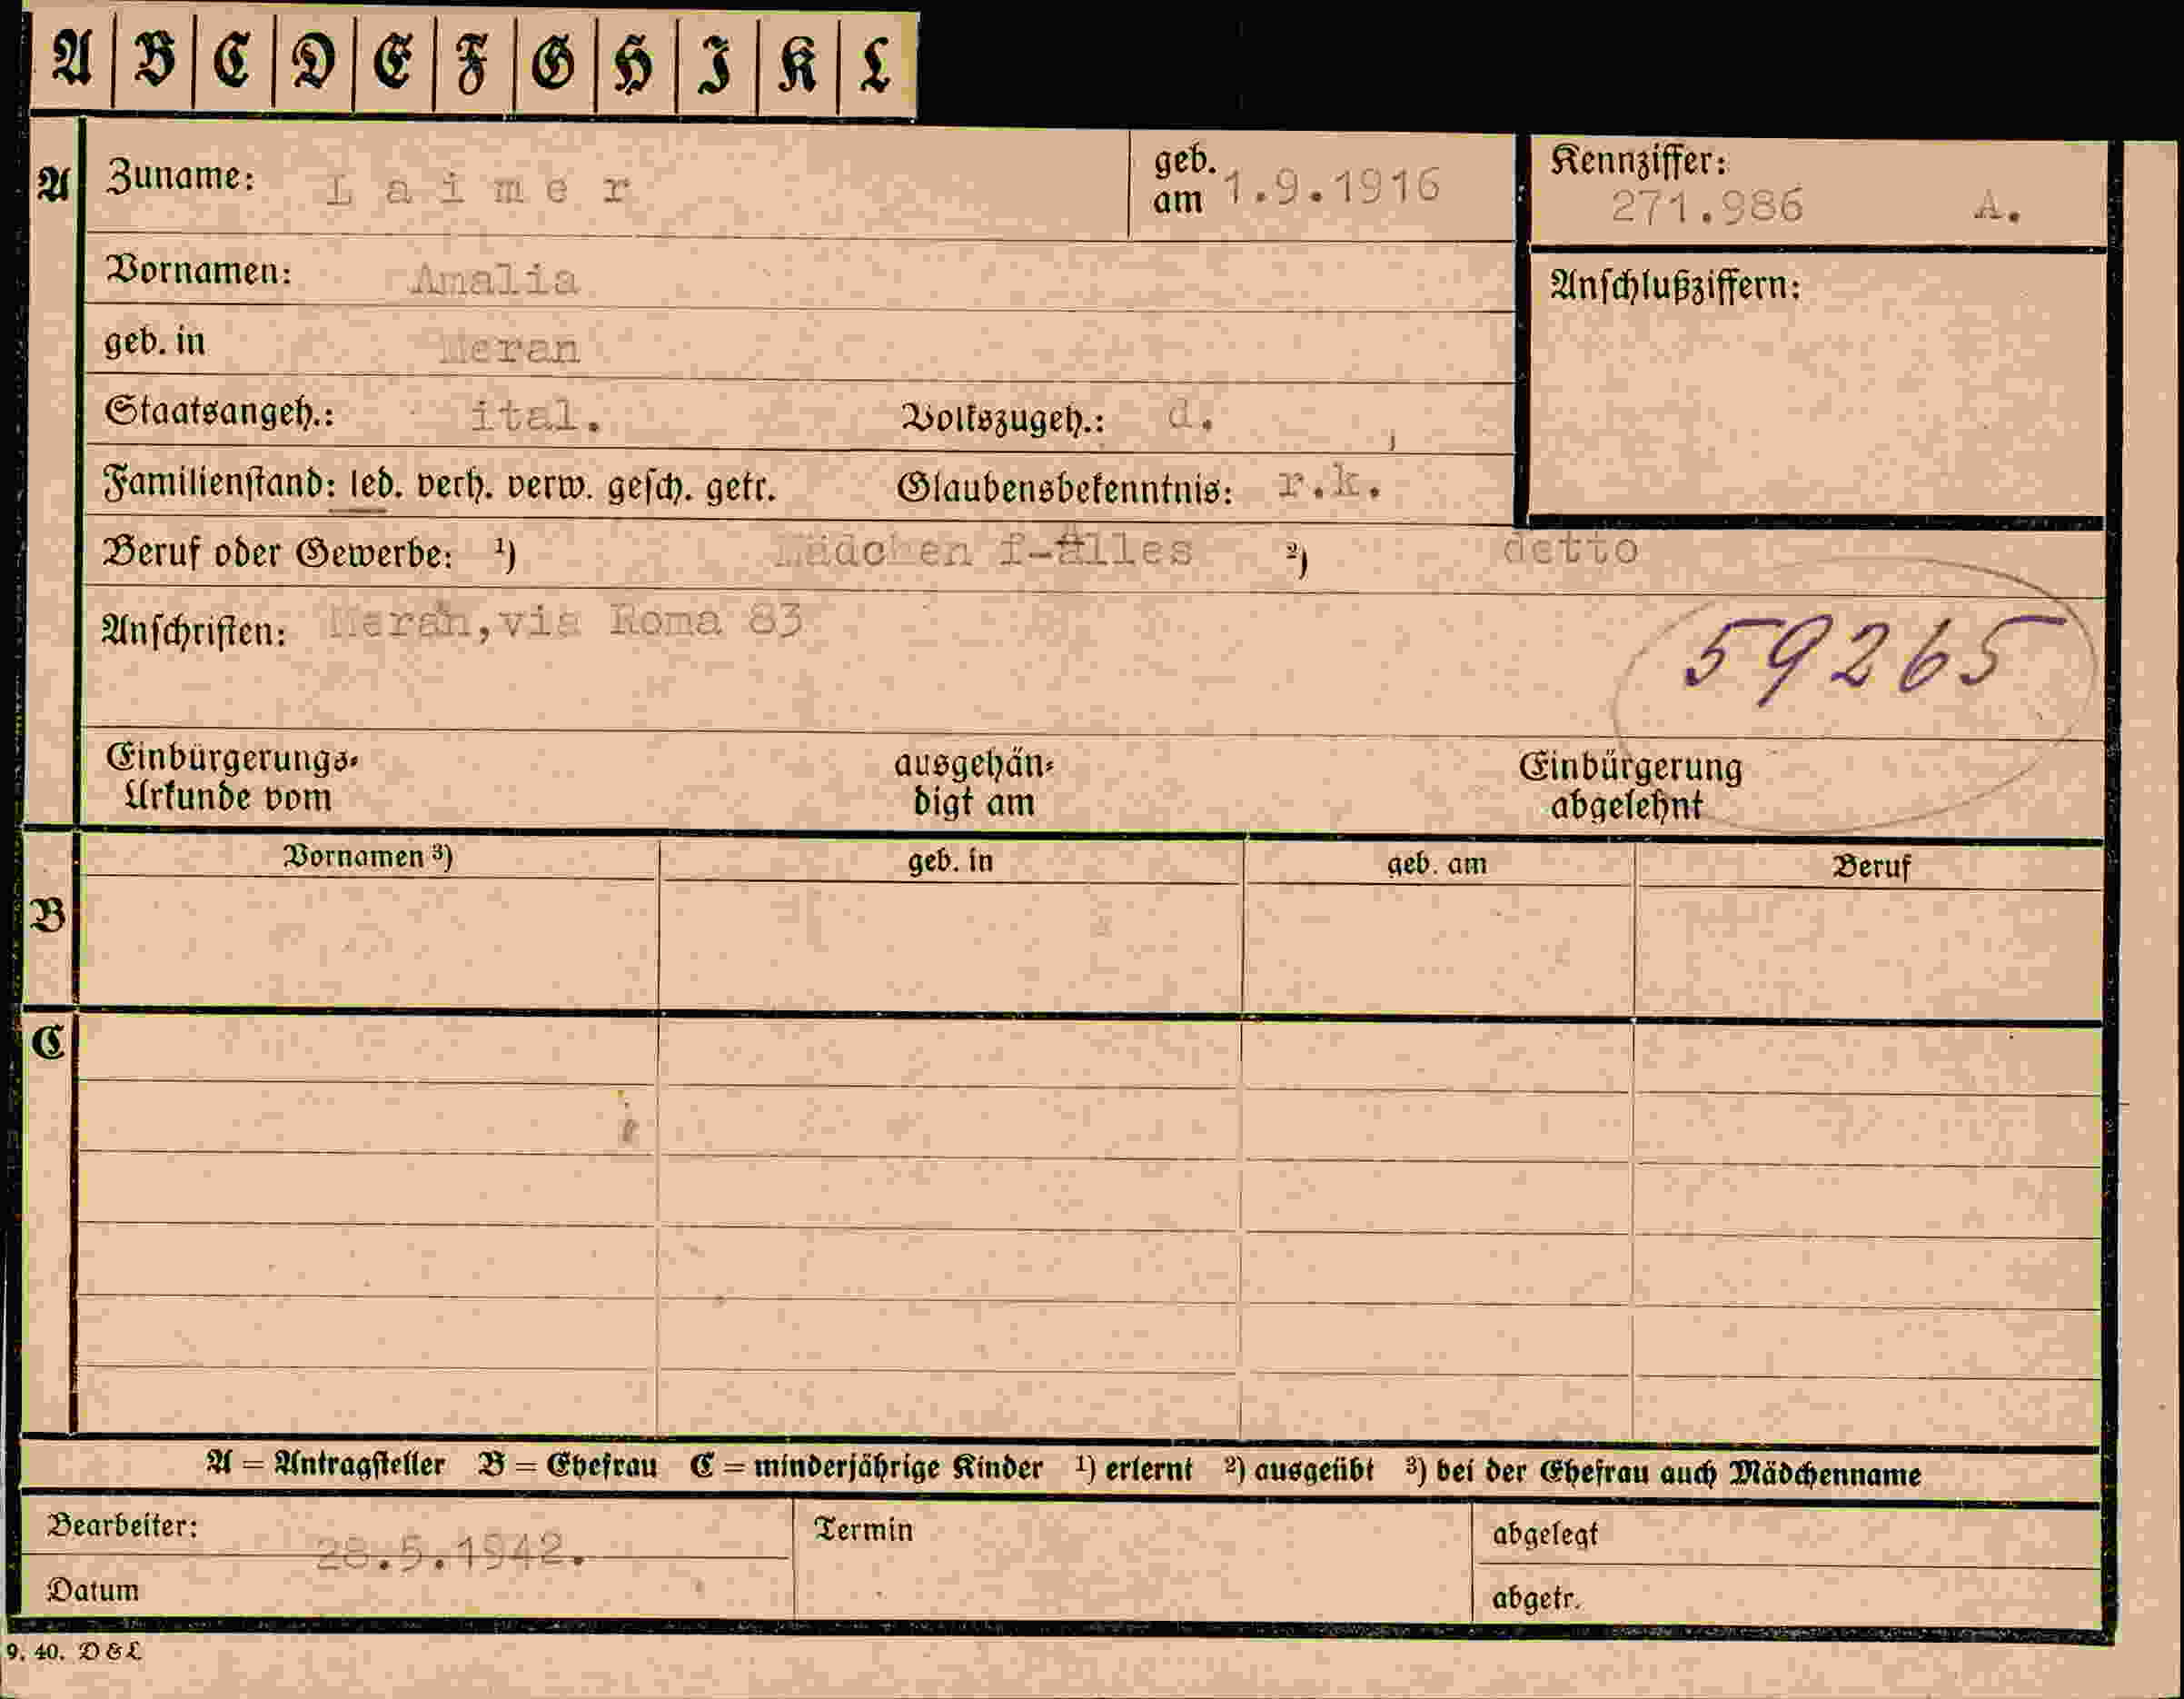 A B C D E F G H I K L
A Zuname: Laimer geb. am 1.9.1916 Kennziffer: 271.986 A.
Vornamen: Amalia Anschlußziffern:
geb. in Meran
Staatsangeh.: ital. Volkszugeh.: d.
Familienstand: led. verh. verw. gesch. getr. Glaubensbekenntnis: r.k.
Beruf oder Gewerbe: ¹) Mädchen f-alles ²) detto
Anschriften: Meran, via Roma 83
59265
Einbürgerungs- ausgehän- Einbürgerung
Urkunde vom digt am abgelehnt
Vornamen ³) geb. in geb. am Beruf
B
C
A = Antragsteller B = Ehefrau C = minderjährige Kinder ¹) erlernt ²) ausgeübt ³) bei der Ehefrau auch Mädchenname
Bearbeiter: Termin abgelegt
28.5.1942.
Datum abgetr.
9. 40. D & L